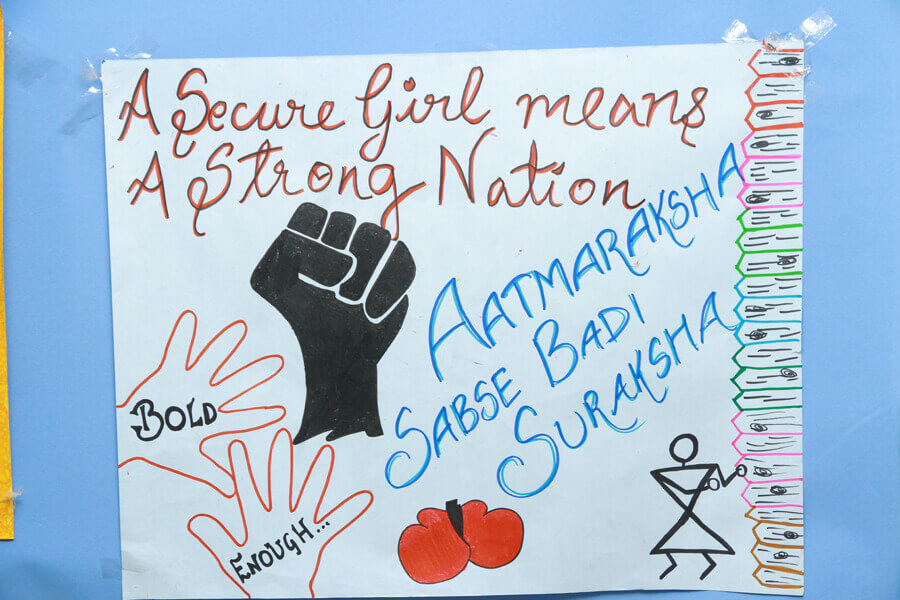 A Secure Girl means
A Strong Nation
AATMARAKSHA
SABSE BADI
SURAKSHA
BOLD
ENOUGH...